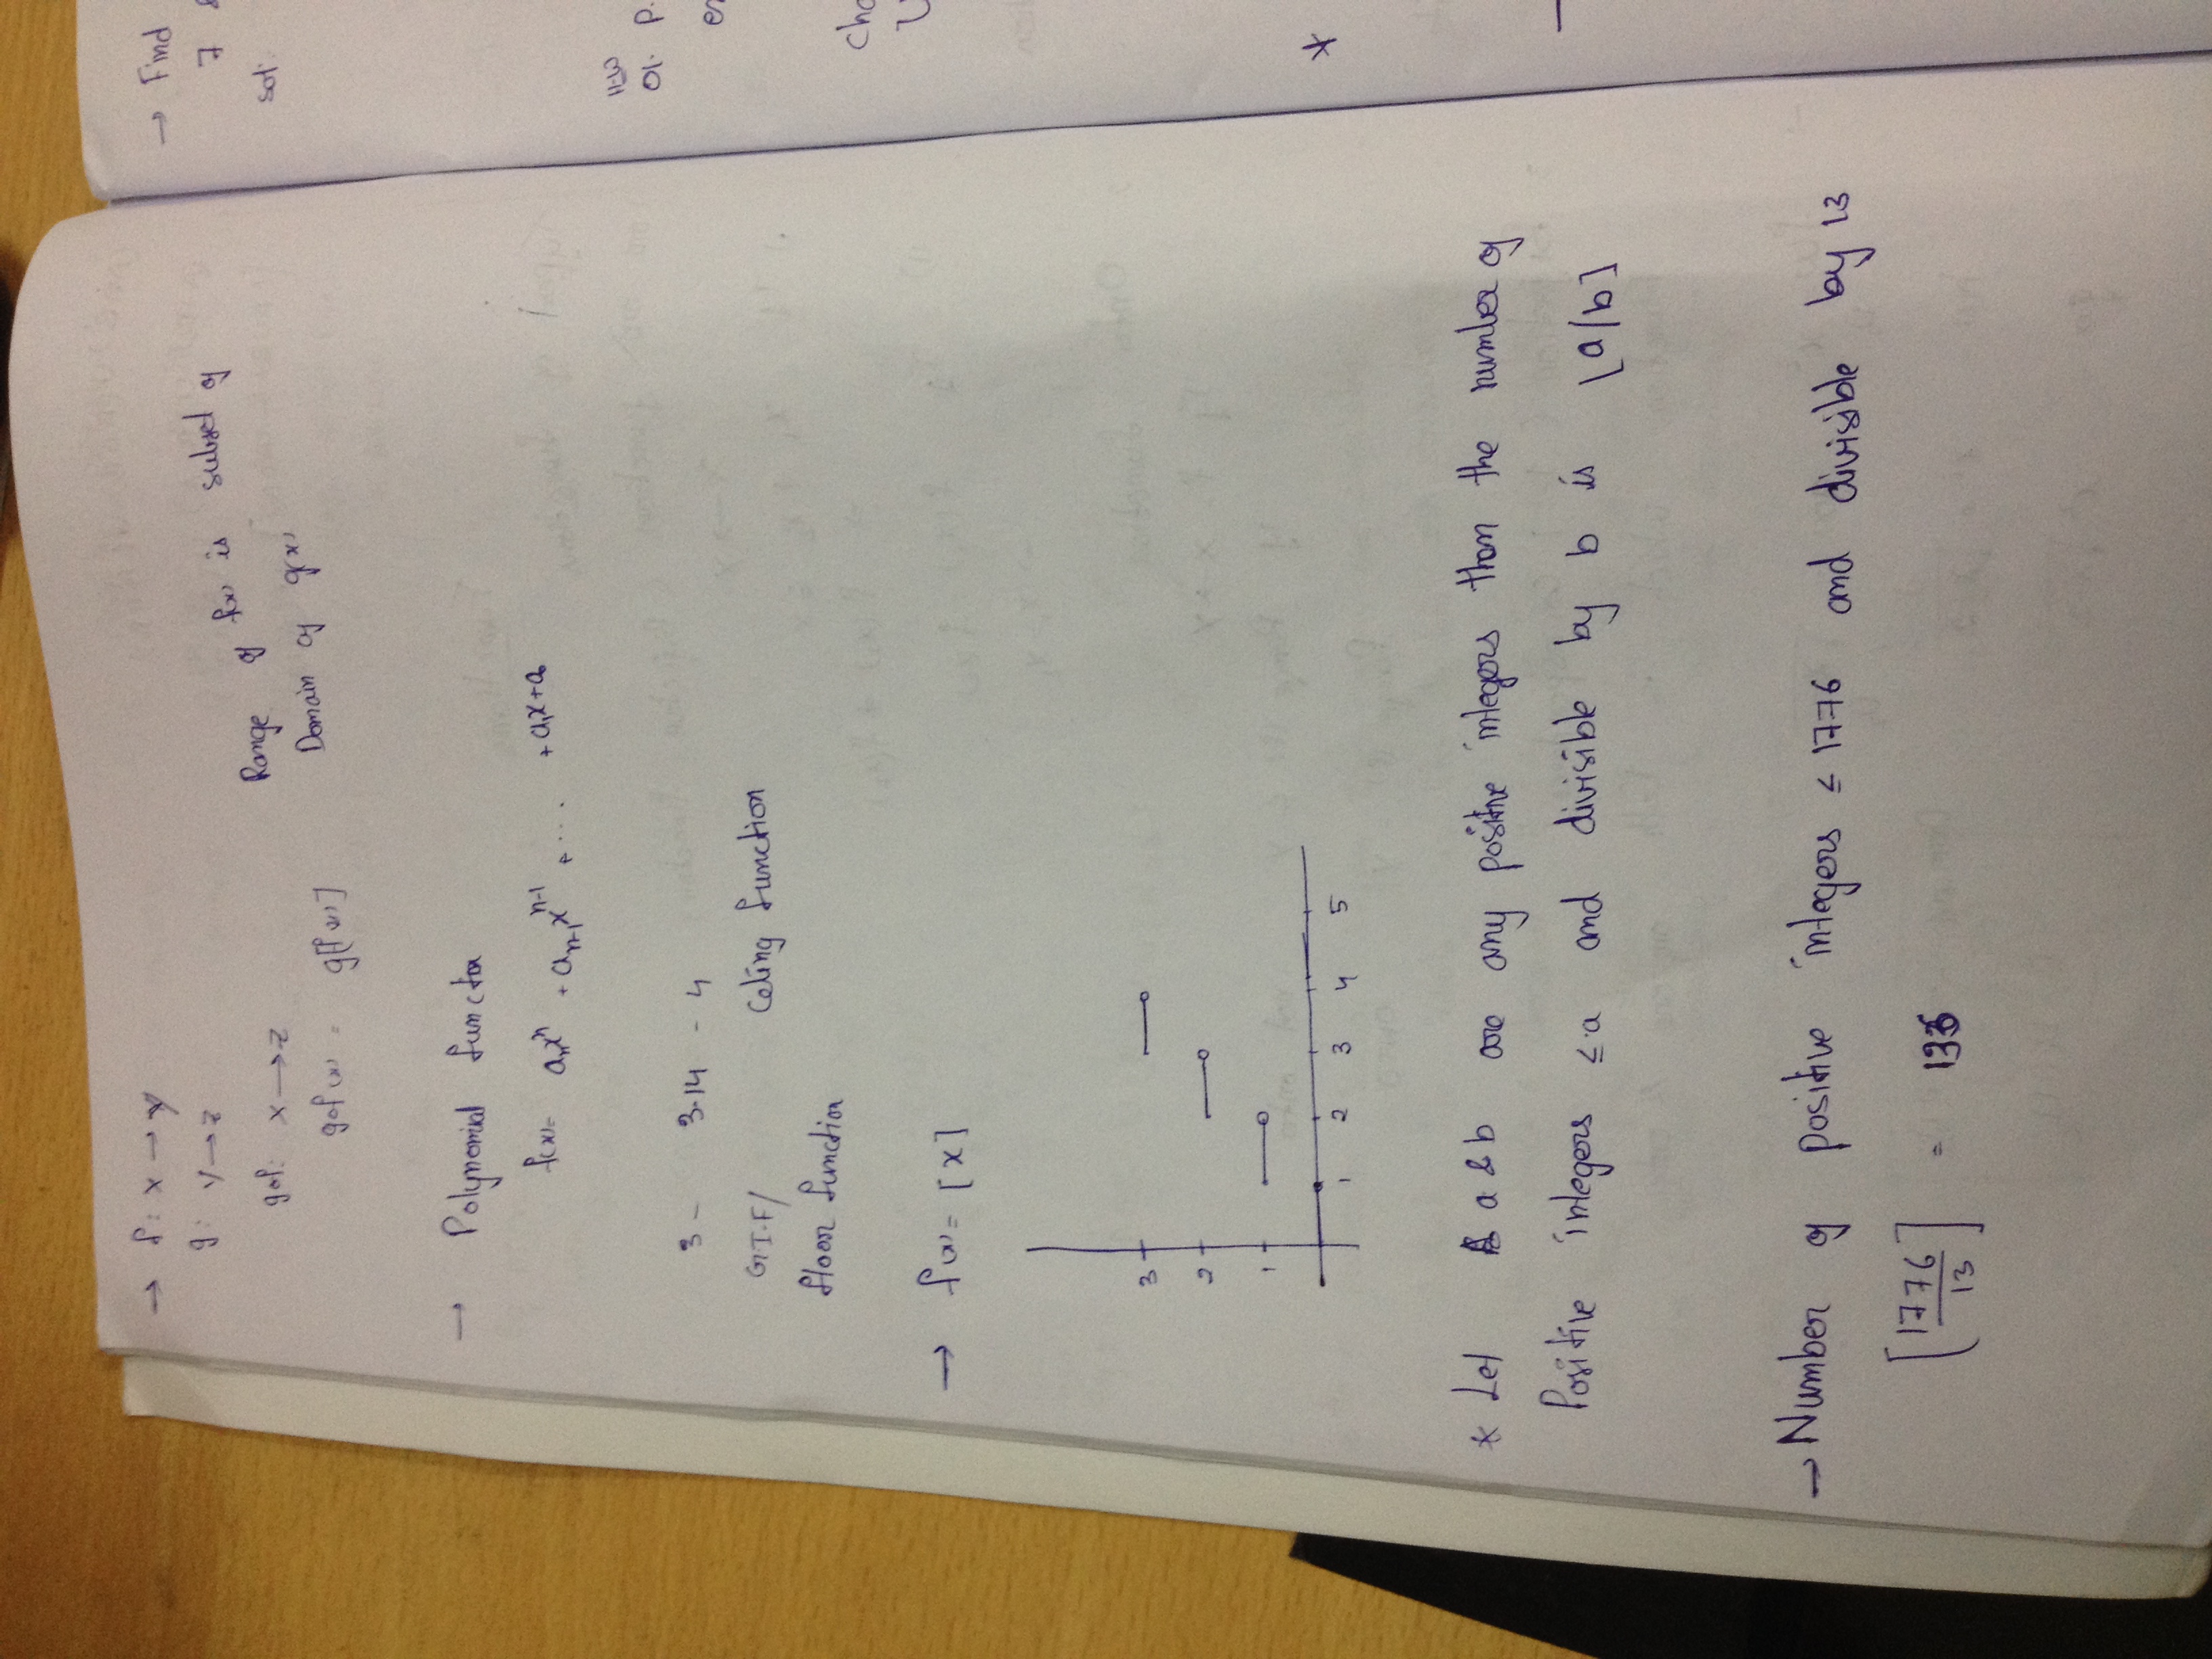 → f: x → y
g: y → z
gof: x → z
gof(x) = g[f(x)]
Range of f(x) is subset of
Domain of g(x)
→ Polynomial function
f(x) = aₙxⁿ + aₙ₋₁xⁿ⁻¹ + .... + a₁x + a₀
3 - 3.14 - 4
G.I.F/ Celing function
floor function
→ f(x) = [x]
3
2
1
1 2 3 4 5
* Let a & b are any positive integers than the number of
Positive integers ≤ a and divisible by b is ⌊a/b]
→ Number of positive integers ≤ 1776 and divisible by 13
[1776/13] = 136
→ Find
7
sol:
H.W
01. P.
*